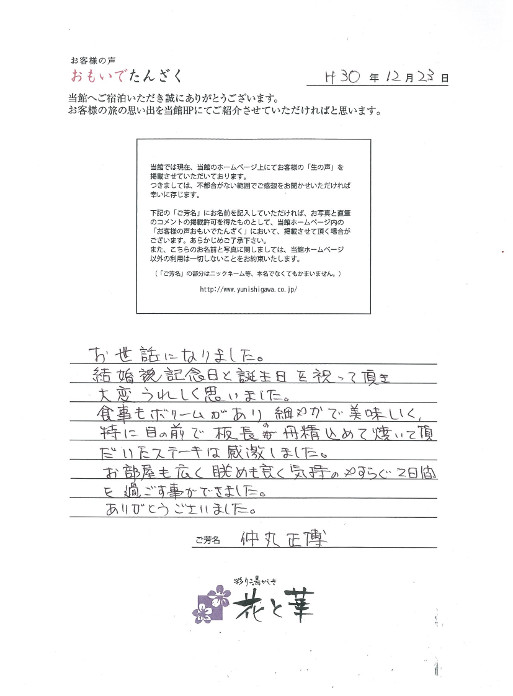 お客様の声
おもいでたんざく
H30年12月23日
当館へご宿泊いただき誠にありがとうございます。
お客様の旅の思い出を当館HPにてご紹介させていただければと思います。
当館では現在、当館のホームページ上にてお客様の「生の声」を
掲載させていただいております。
つきましては、不都合がない範囲でご感想をお聞かせいただければ
幸いに存じます。
下記の「ご芳名」にお名前を記入していただければ、お写真と直筆
のコメントの掲載許可を得たものとして、当館ホームページ内の
「お客様の声おもいでたんざく」において、掲載させて頂く場合が
ございます。あらかじめご了承下さい。
また、こちらのお名前と写真に関しましては、当館ホームページ
以外の利用は一切しないことをお約束いたします。
（「ご芳名」の部分はニックネーム等、本名でなくてもかまいません。）
http://www.yunishigawa.co.jp/
お世話になりました。
結婚記念日と誕生日を祝って頂き
大変うれしく思いました。
食事もボリュームがあり細やかで美味しく、
特に目の前で板長の丹精込めて焼いて頂
だいたステーキは感激しました。
お部屋も広く眺めも良く気持のやすらぐ2日間
を過ごす事ができました。
ありがとうございました。
ご芳名 仲丸正博
彩り湯かしき
花と華